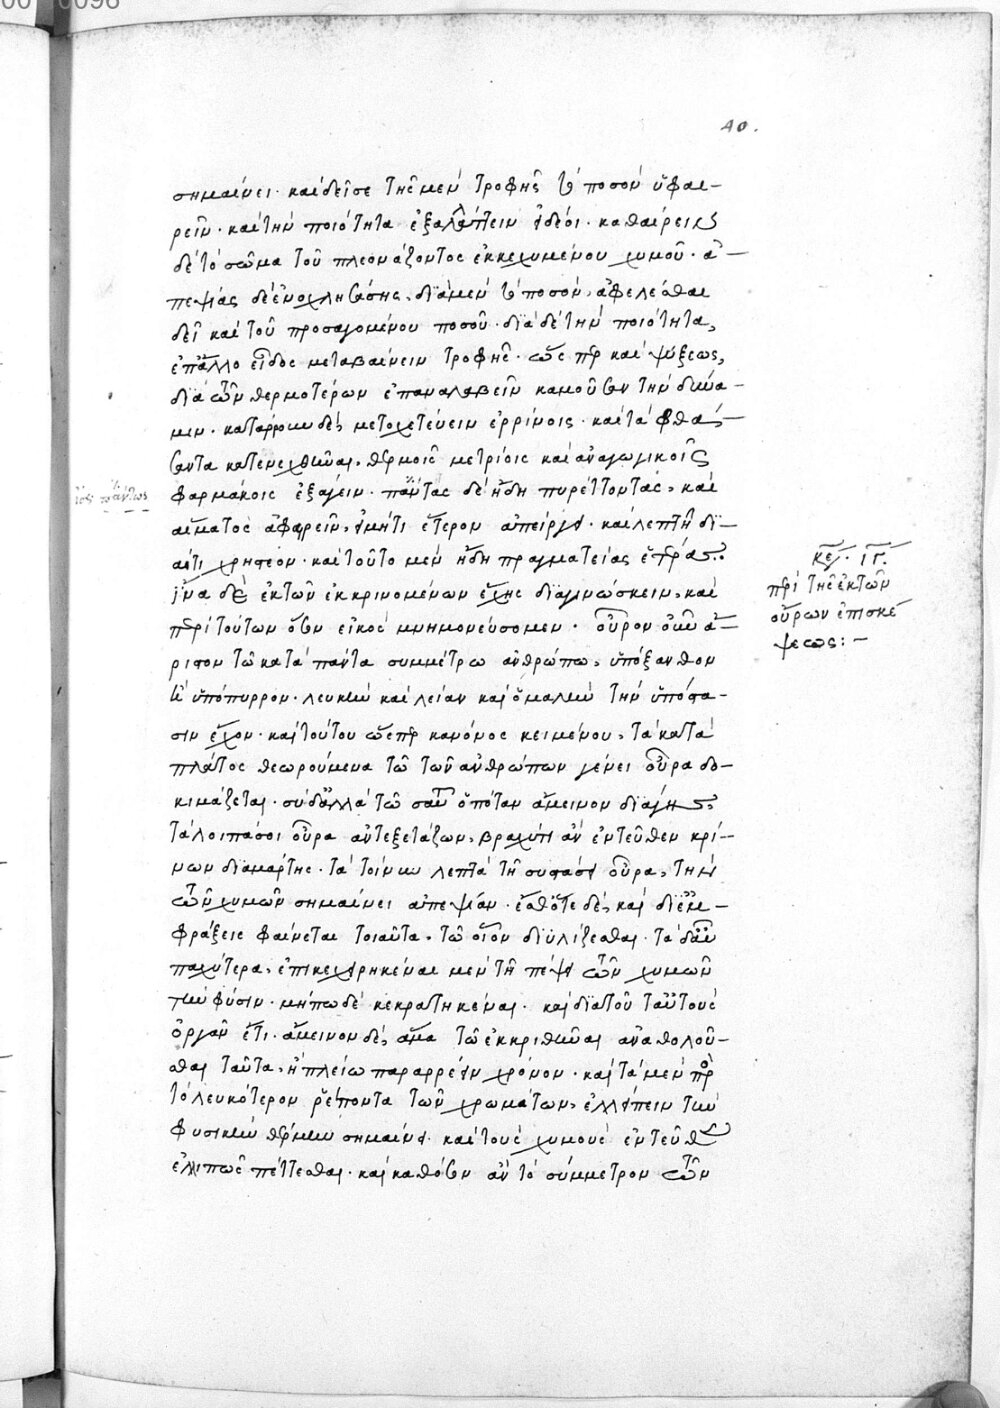 40.
σημαίνει· καὶ δεῖ σε τῆς μὲν τροφῆς τὸ ποσὸν ὑφαι-
ρεῖν· καὶ τὴν ποιότητα ἐξαλλάττειν δέοι· καθαίρειν
δὲ τὸ σῶμα τοῦ πλεονάζοντος ἐκκεχυμένου χυμοῦ· ἀ-
πεψίας δὲ ἐνοχλησάσης, διὰ μὲν τὸ ποσὸν, ἀφελέσθαι
δεῖ καὶ τοῦ προσαγομένου ποσοῦ· διὰ δὲ τὴν ποιότητα,
ἐπ' ἄλλο εἶδος μεταβαίνειν τροφῆς· ὥσπερ καὶ ψύξεως,
διὰ τῶν θερμοτέρων ἐπαναλαβεῖν καμοῦσαν τὴν δύνα-
μιν· κατάρρουν δὲ, μετοχετεύειν ἐρρίνοις· καὶ τὰ φθά-
σαντα κατενεχθῆναι, θερμοῖς μετρίοις καὶ ἀναγωγικοῖς
φαρμάκοις ἐξάγειν· πάντας δὲ ἤδη πυρέττοντας, καὶ
αἵματος ἀφαιρεῖν, εἰ μή τι ἕτερον ἀπείργει· καὶ λεπτῇ δι-
αίτῃ χρηστέον· καὶ τοῦτο μὲν ἤδη πραγματείας ἑτέρας:
ἵνα δὲ ἐκ τῶν ἐκκρινομένων ἔχῃς διαγινώσκειν, καὶ
περὶ τούτων ὅσον εἰκὸς μνημονεύσομεν· οὖρον οὖν ἄ-
ριστον τῶ κατὰ πάντα συμμέτρω ἀνθρώπω, ὑπόξανθον
καὶ ὑπόπυρρον· λευκὴν καὶ λείαν καὶ ὁμαλὴν τὴν ὑπόστα-
σιν ἔχον· καὶ τούτου ὥσπερ κανόνος κειμένου, τὰ κατὰ
πλάτος θεωρούμενα τῶ τῶν ἀνθρώπων γένει οὖρα δο-
κιμάζεται· σὺ δ' ἀλλὰ τῶ σαυτοῦ ὁπόταν ἄμεινον διάγῃς,
τὰ λοιπά σοι οὖρα ἀντεξετάζων, βραχύ τι ἂν ἐντεῦθεν κρί-
νων διαμάρτῃς· τὰ τοίνυν λεπτὰ τῇ συστάσει οὖρα, τὴν
τῶν χυμῶν σημαίνει ἀπεψίαν· ἔσθ' ὅτε δὲ, καὶ δι' ἐμ-
φράξεις φαίνεται τοιαῦτα, τῶ οἷον διϋλίζεσθαι· τὰ δ' αὖ
παχύτερα, ἐπικεχειρηκέναι μὲν τῇ πέψει τῶν χυμῶν
τὴν φύσιν· μήπω δὲ κεκρατηκέναι· καὶ διὰ τοῦτ' αὐτοὺς
ὀργᾶν ἔτι· ἄμεινον δὲ, ἅμα τῶ ἐκκριθῆναι ἀναθολοῦ-
σθαι ταῦτα, ἢ πλείω παραρρέειν χρόνον· καὶ τὰ μὲν πρὸς
τὸ λευκότερον ῥέποντα τῶν χρωμάτων, ἐλλείπειν τὴν
φυσικὴν θέρμην σημαίνει· καὶ τοὺς χυμοὺς ἐντεῦθεν
ἐλλιπῶς πέττεσθαι· καὶ καθόσον ἂν τὸ σύμμετρον τῶν
κεφ. ΙΓ.
περὶ τῆς ἐκ τῶν
οὔρων ἐπισκέ
ψεως:–